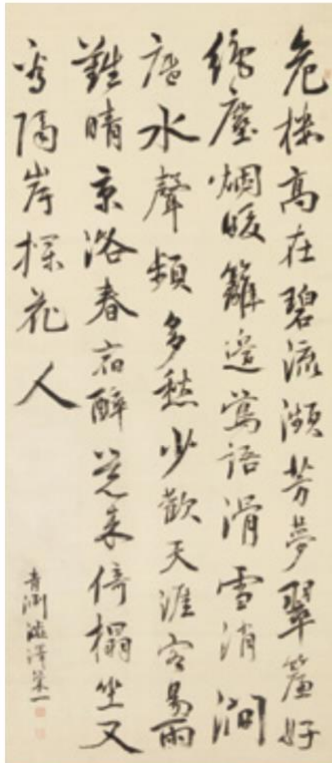 危楼高在碧流瀕芳夢翠簾好
絶塵烟暖籬邊鶯語滑雪消澗
底水聲頻多愁少歓天涯客易雨
難晴京洛春宿酔覚来倚榻坐又
看隔岸探花人
青淵澁澤栄一